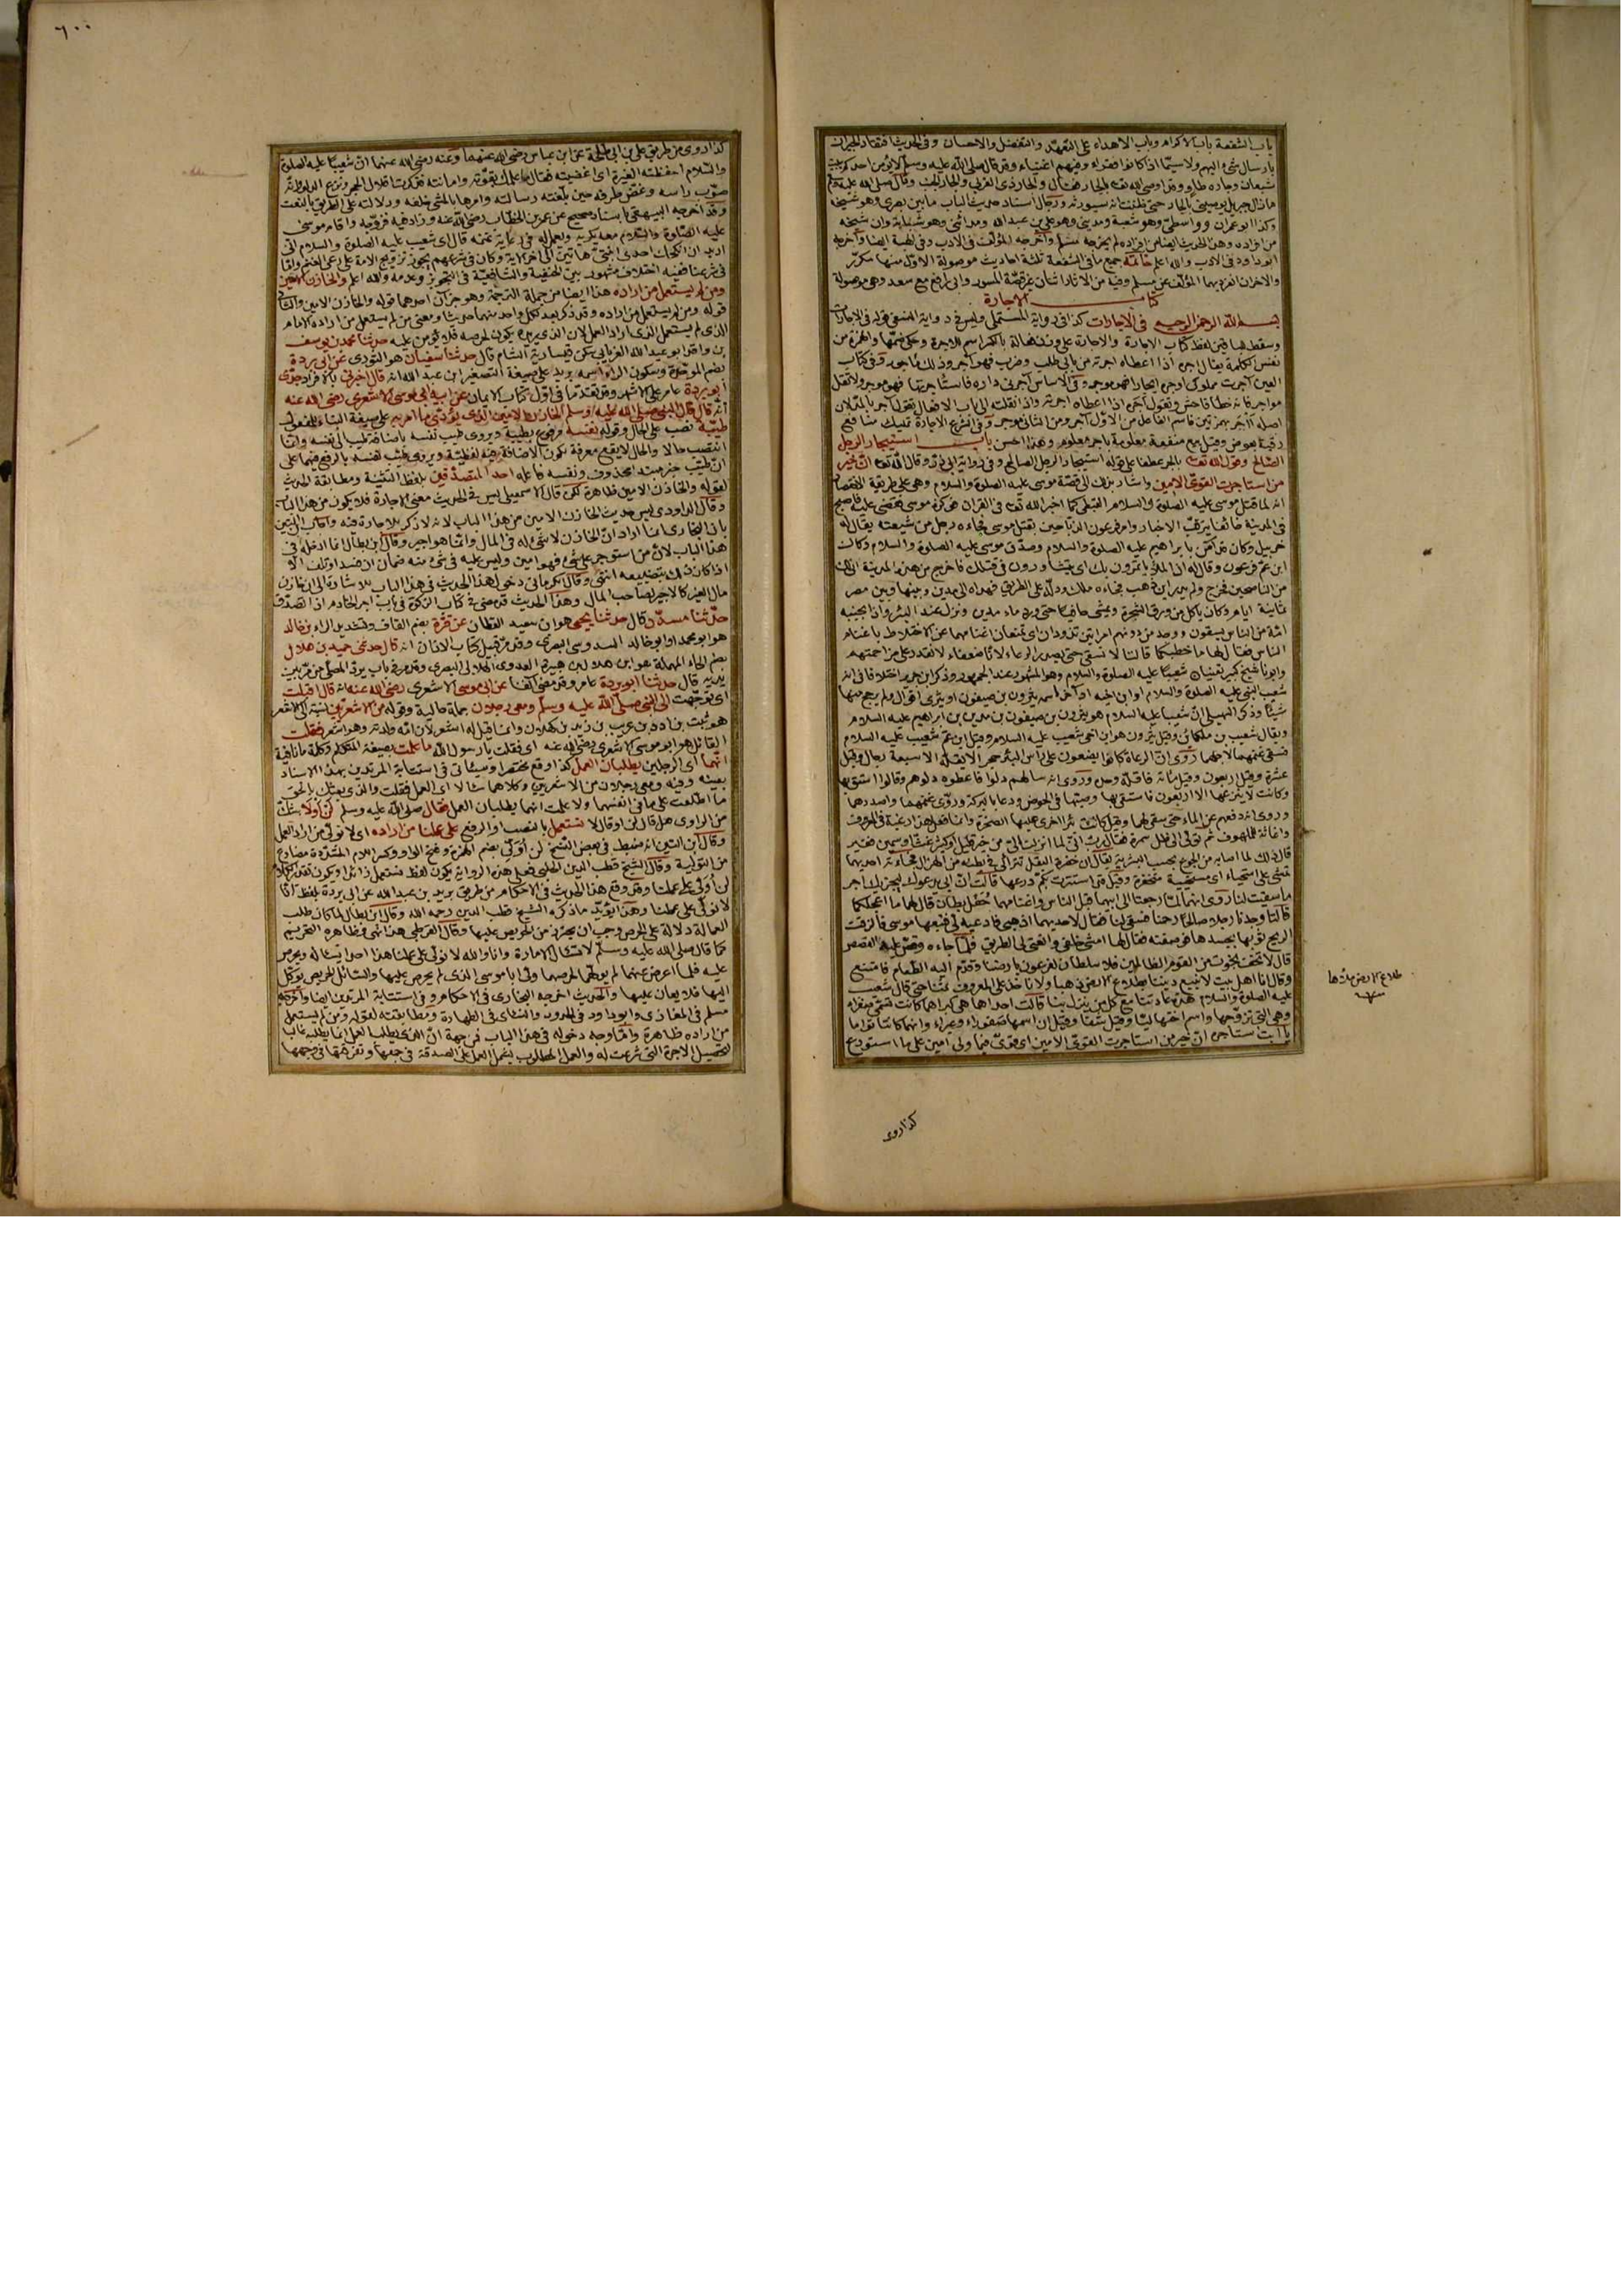 باب الشفعة باب الاكرام وباب الاهداء على التعهد والتفضل والاحسان وفي الحديث افتقاد الجيران
بارسال شيء اليهم ولا سيما اذا كانوا فقراء وفيهم اغنياء وقد قال صلى الله عليه وسلم لا يؤمن احدكم يبيت
شبعان وجاره طاو وقد اوصى الله تعالى بالجار فقال والجار ذي القربى والجار الجنب وقال صلى الله عليه وسلم
ما زال جبريل يوصيني بالجار حتى ظننت انه سيورثه ورجال اسناد حديث الباب ما بين بصري وهو شيخه
وكذا ابو عمران وواسطي وهو شعبة ومديني وهو علي بن عبد الله ومدائني وهو شبابة وان شيخه
من افراده وهذا الحديث ايضا من افراده لم يخرجه مسلم واخرجه المؤلف في الادب وفي الهبة ايضا واخرجه
ابو داود في الادب والله اعلم خاتمة جميع ما في الشفعة ثلثة احاديث موصولة الاول منها مكرر
والاخران انفرد بهما المؤلف عن مسلم وفيه من الاثار اثنان غير قصة المسور وابي رافع مع سعد وهي موصولة
كتاب الاجارة
بسم الله الرحمن الرحيم في الاجارات كذا في رواية المستملي وليس في رواية النسفي قوله في الاجارات
وسقط للباقين لفظ كتاب الاجارة والاجارة على وزن فعالة بالكسر اسم للاجرة وحكي ضمها والهمزة من
نفس الكلمة يقال اجره اذا اعطاه اجرته من بابي طلب وضرب فهو آجر وذلك مأجور وفي كتاب
العين آجرت مملوكي اوجره ايجارا فهو موجر وفي الاساس آجرني داره فاستأجرتها فهو موجر ولا تقل
مواجر فانه خطأ فاحش وتقول آجره اذا اعطاه اجرته واذا نقلته الى باب الافعال تقول آجر بالمد لان
اصله أأجر بهمزتين فاسم الفاعل من الاول آجر ومن الثاني موجر وفي الشرع الاجارة تمليك منافع
رقبة بعوض وقيل بيع منفعة معلومة باجر معلوم وهذا احسن باب استيجار الرجل
الصالح وقول الله تعالى بالجر عطفا على قوله استيجار الرجل الصالح وفي رواية ابي ذر وقال الله تعالى ان خير
من استأجرت القوي الامين واشار بذلك الى قصة موسى عليه الصلوة والسلام وهي على طريقة الاختصار
انه لما قتل موسى عليه الصلوة والسلام القبطي كما اخبر الله تعالى في القران فوكزه موسى فقضى عليه فاصبح
في المدينة خائفا يترقب الاخبار وامر فرعون الذباحين بقتل موسى فجاءه رجل من شيعته يقال له
خربيل وكان قد آمن بابراهيم عليه الصلوة والسلام وصدق موسى عليه الصلوة والسلام وكان
ابن عم فرعون وقال له ان الملأ يأتمرون بك اي يتشاورون في قتلك فاخرج من هذه المدينة اني لك
من الناصحين فخرج ولم يدر اين يذهب فجاءه ملك ودله على الطريق فهداه الى مدين وبينها وبين مصر
ثمانية ايام وكان يأكل من ورق الشجرة ويمشي حافيا حتى ورد ماء مدين ونزل عند البئر واذا بجنبه
امة من الناس يسقون ووجد من دونهم امراتين تذودان اي تمنعان اغنامهما عن الاختلاط باغنام
الناس فقال لهما ما خطبكما قالتا لا نسقي حتى يصدر الرعاء لانا ضعفاء لا نقدر على مزاحمتهم
وابونا شيخ كبير تعنيان شعيبا عليه الصلوة والسلام وهو المشهور عند الجمهور وذكر ابن جرير اختلافا في انه
شعيب النبي عليه الصلوة والسلام او ابن اخيه او آخر اسمه يثرون بن صيفون او يثرى اقوال ولم يرجح منها
شيئا وذكر السهيلي ان شعيبا عليه السلام هو يثرون بن صيفون بن مدين بن ابراهيم عليه السلام
ويقال شعيب بن ملكاين وقيل يثرون هو ابن اخي شعيب عليه السلام وقيل ابن عم شعيب عليه السلام
فسقى غنمهما لاجلهما روى ان الرعاة كانوا يضعون على رأس البئر حجرا لا يقله الا سبعة رجال وقيل
عشرة وقيل اربعون وقيل مائة فاقله وحده وروى انه سألهم دلوا فاعطوه دلوهم وقالوا استق بها
وكانت لا ينزعها الا اربعون فاستقى بها وصبها في الحوض ودعا بالبركة وروى غنمهما واصدرهما
وروى انه دفعهم عن الماء حتى سقى لهما وقيل كانت بئرا اخرى عليها الصخرة وانما فعل هذا رغبة في المعروف
واغاثة للملهوف ثم تولى الى ظل سمرة فقال رب اني لما انزلت الي من خير قليل او كثير غث او سمين فقير
قال ذلك لما اصابه من الجوع بحسب البشرية يقال ان خضرة البقل تتراأى في بطنه من الهزال فجاءته احديهما
تمشي على استحياء اي مستحيية متخفرة وقيل قد استترت بكم درعها قالت ان ابي يدعوك ليجزيك اجر
ما سقيت لنا روى انهما لما رجعتا الى ابيهما قبل الناس واغنامهما حفل بطان قال لهما ما اعجلكما
قالتا وجدنا رجلا صالحا رحمنا فسقى لنا فقال لاحديهما اذهبي فادعيه لي فتبعها موسى فالزقت
الريح ثوبها بجسدها فوصفته فقال لها امشي خلفي وانعتي لي الطريق فلما جاءه وقص عليه القصص
قال لا تخف نجوت من القوم الظالمين فلا سلطان لفرعون بارضنا وقدم اليه الطعام فامتنع
وقال انا اهل بيت لا نبيع ديننا بطلاع الارض ذهبا ولا نأخذ على المعروف ثمنا حتى قال شعيب
عليه الصلوة والسلام هذه عادتنا مع كل من ينزل بنا قالت احداهما هي كبراهما كانت تسمى صفراء
وهي التي تزوجها واسم اختها ليا وقيل شفا وقيل ان اسمها صفراء وانهما كانتا توأما
يا ابت استأجره ان خير من استأجرت القوي الامين اي قوي فيما ولي امين على ما استودع
كذا روى
طلاع الارض ملؤها
٦٠٠
كذا روى من طريق علي بن ابي طلحة عن ابن عباس رضي الله عنهما وعنه رضي الله عنهما ان شعيبا عليه الصلوة
والسلام احفظته الغيرة اي اغضبته فقال وما علمك بقوته وامانته فذكرت اقلال الحجر ونزع الدلو وانه
صوب رأسه وغض طرفه حين بلغته رسالته وامرها بالمشي خلفه ودلالته على الطريق بالنعت
وقد اخرجه البيهقي باسناد صحيح عن عمر بن الخطاب رضي الله عنه وزاد فيه فزوجه واقام موسى
عليه الصلوة والسلام معه يكريه ويعمل له في رعاية غنمه قال اي شعيب عليه الصلوة والسلام اني
اريد ان انكحك احدى ابنتي هاتين الى آخر الاية وكان في شرعهم يجوز تزويج الامة على رعي الغنم واما
في شرعنا ففيه اختلاف مشهور بين الحنفية والشافعية في التجويز وعدمه والله اعلم والخازن الامين
ومن لم يستعمل من اراده هذا ايضا من جملة الترجمة وهو جزآن احدهما قوله والخازن الامين والثاني
قوله ومن لم يستعمل من اراده وقد ذكر بعد لكل واحد منهما حديثا ومعنى من لم يستعمل من اراده الامام
الذي لم يستعمل الذي اراد العمل لان الذي يريده يكون لحرصه فلا يؤمن عليه حدثنا محمد بن يوسف
بن واقد ابو عبد الله الفريابي سكن قيسارية الشام قال حدثنا سفيان هو الثوري عن ابي بردة
بضم الموحدة وسكون الراء اسمه بريد على صيغة التصغير ابن عبد الله انه قال اخبرني بالافراد جدي
ابو بردة عامر على الاشهر وقد تقدما في اول كتاب الايمان عن ابيه ابي موسى الاشعري رضي الله عنه
انه قال قال النبي صلى الله عليه وسلم الخازن الامين الذي يؤدي ما امر به على صيغة البناء للمفعول
طيبة نصب على الحال وقوله نفسه مرفوع بطيبة ويروى طيب نفسه باضافة طيب الى نفسه وانما
انتصب حالا والحال لا يقع معرفة لكون الاضافة فيه لفظية ويروى طيب نفسه بالرفع فيهما على
ان طيب خبر مبتدأ محذوف ونفسه فاعله احد المتصدقين بلفظ التثنية ومطابقة الحديث
لقوله والخازن الامين ظاهرة لكن قال الاسمعيلي ليس في الحديث معنى الاجارة فلا يكون من هذا الباب
وقال الداودي ليس حديث الخازن الامين من هذا الباب لانه لا ذكر للاجارة فيه واجاب ابن التين
بان البخاري انما اراد ان الخازن لا شيء له في المال وانما هو اجير وقال ابن بطال انما ادخله في
هذا الباب لان من استؤجر على شيء فهو امين وليس عليه في شيء منه ضمان ان فسد او تلف الا
اذا كان ذلك بتضييعه انتهى وقال الكرماني دخول هذا الحديث في هذا الباب للاشارة الى ان خازن
مال الغير كالاجير لصاحب المال وهذا الحديث قد مضى في كتاب الزكوة في باب اجر الخادم اذا تصدق
حدثنا مسدد قال حدثنا يحيى هو ابن سعيد القطان عن قرة بضم القاف وتشديد الراء بن خالد
هو ابو محمد او ابو خالد السدوسي البصري وقد مر قبيل كتاب الاذان انه قال حدثني حميد بن هلال
بضم الحاء المهملة هو ابن هلال بن هبيرة العدوي الهلالي البصري وقد مر في باب يرد المصلي من مر بين
يديه قال حدثنا ابو بردة عامر وقد مضى آنفا عن ابي موسى الاشعري رضي الله عنه انه قال اقبلت
اي توجهت الى النبي صلى الله عليه وسلم ومعي رجلان جملة حالية وقوله من الاشعريين نسبة الى الاشعر
هو نبت بن ادد بن عريب بن زيد بن كهلان وانما قيل له اشعر لان امه ولدته وهو اشعر فقلت
القائل هو ابو موسى الاشعري رضي الله عنه اي فقلت يا رسول الله ما علمت بصيغة المتكلم وكلمة ما نافية
انهما اي الرجلين يطلبان العمل كذا وقع مختصرا وسيأتي في استتابة المرتدين بهذا الاسناد
بعينه وفيه ومعي رجلان من الاشعريين وكلاهما سألا اي العمل فقلت والذي بعثك بالحق
ما اطلعت على ما في انفسهما ولا علمت انهما يطلبان العمل فقال صلى الله عليه وسلم لن او لا شك
من الراوي هل قال لن او قال لا نستعمل بالنصب او الرفع على عملنا من اراده اي لا نولي من اراد العمل
وقال ابن التين انه ضبط في بعض النسخ لن أولي بضم الهمزة وفتح الواو وكسر اللام المشددة مضارع
من التولية وقال الشيخ قطب الدين الحلبي فعلى هذه الرواية يكون لفظ نستعمل زائدا ويكون تقدير الكلام
لن أولي على عملنا وقد وقع هذا الحديث في الاحكام من طريق بريد بن عبد الله عن ابي بردة بلفظ انا
لا نولي على عملنا وهذا يؤيد ما ذكره الشيخ قطب الدين رحمه الله وقال ابن بطال لما كان طلب
العمالة دلالة على الحرص وجب ان يحترز من الحريص عليها وقال القرطبي هذا نهي وظاهره التحريم
كما قال صلى الله عليه وسلم لا تسأل الامارة وانا والله لا نولي على عملنا هذا احدا يسأله ويحرص
عليه فلما اعرض عنهما لم يولهما لحرصهما وولى ابا موسى الذي لم يحرص عليها والسائل الحريص يوكل
اليها فلا يعان عليها والحديث اخرجه البخاري في الاحكام وفي استتابة المرتدين ايضا واخرجه
مسلم في المغازي وابو داود في الحدود والنسائي في الطهارة ومطابقته لقوله ومن لم يستعمل
من اراده ظاهرة واما وجه دخوله في هذا الباب فمن جهة ان الذي يطلب العمل انما يطلب غالبا
لتحصيل الاجرة التي شرعت له والعمل المطلوب يشمل العمل على الصدقة في جمعها وتفرقتها في وجهها